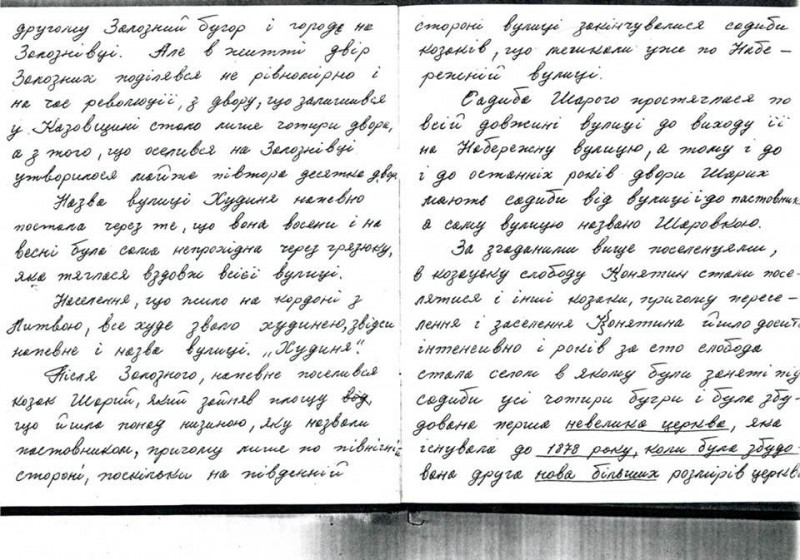 другому Залозний бугор і городе на
Залознівці. Але в житті двір
Залозних поділявся не рівномірно і
на час революції, з двору, що залишився
у Казовщині стало лише чотири двора,
а з того, що оселився на Залознівці
утворилося майже півтора десятка двор
Назва вулиці Худиня напевно
постала через те, що вона восени і на
весні була сама непрохідна через грязюку,
яка тяглася вздовж всієї вулиці.
Населення, що жило на кордоні з
Литвою, все худе звало худинею, звідси
напевне і назва вулиці. „Худиня".
Після Залозного, напевне поселився
козак Шарий, який зайняв площу від,
що йшла понад низиною, яку назвали
паставником, причому лише по північні
стороні, поскільки на південній
стороні вулиці закінчувалися садиби
козаків, що мешкали уже по Набе-
режній вулиці.
Садиба Шарого простяглася по
всій довжині вулиці до виходу її
на Набережну вулицю, а тому і до
і до останніх років двори Шарих
мають садиби від вулиці і до паставник
а саму вулицю названо Шаровкою.
За згаданими вище поселенцями,
в козацьку слободу Конятин стали посе-
лятися і інші козаки, причому пересе-
лення і заселення Конятина йшло досить
інтенсивно і років за сто слобода
стала селом в якому були заняті під
садиби усі чотири бугри і була збу-
дована перша невелика церква, яка
існувала до 1878 року, коли була збудо-
вана друга нова більших розмірів церкв